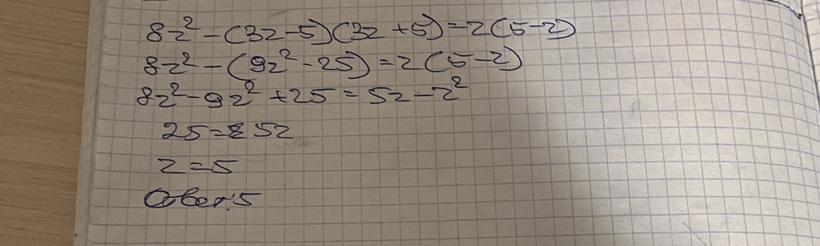 8z² - (3z - 5)(3z + 5) = z(5 - z)
8z² - (9z² - 25) = z(5 - z)
8z² - 9z² + 25 = 5z - z²
25 = 5z
z = 5
Ответ: 5